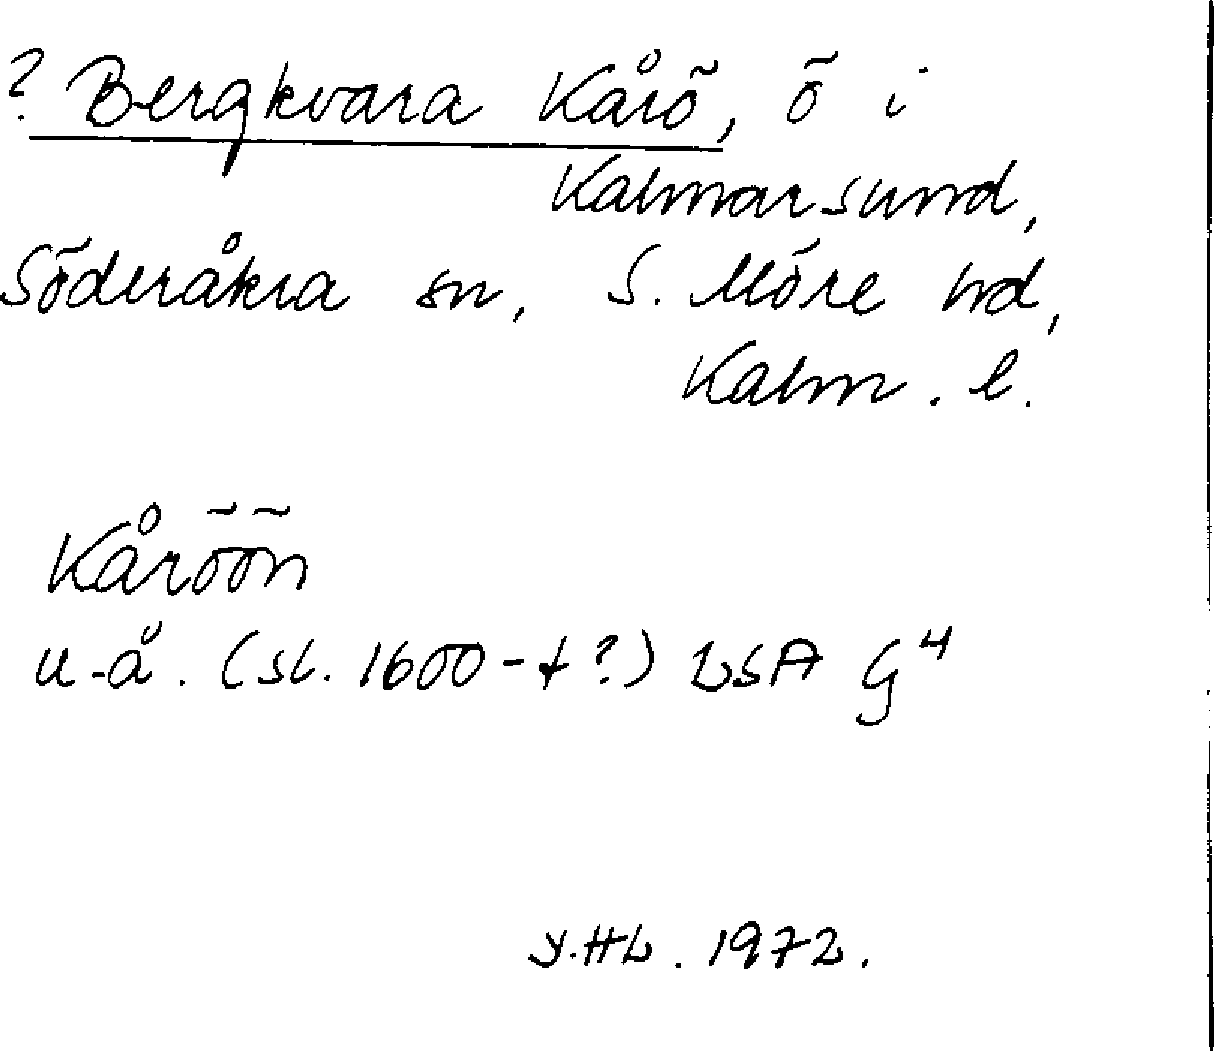 ? Bergkvara Kårö, ö i
Kalmarsund,
Söderåkra sn, S. Möre hd,
Kalm. l.
Kåröön
u.å. (sl. 1600-t?) LSA G4
Y.Hb. 1972.